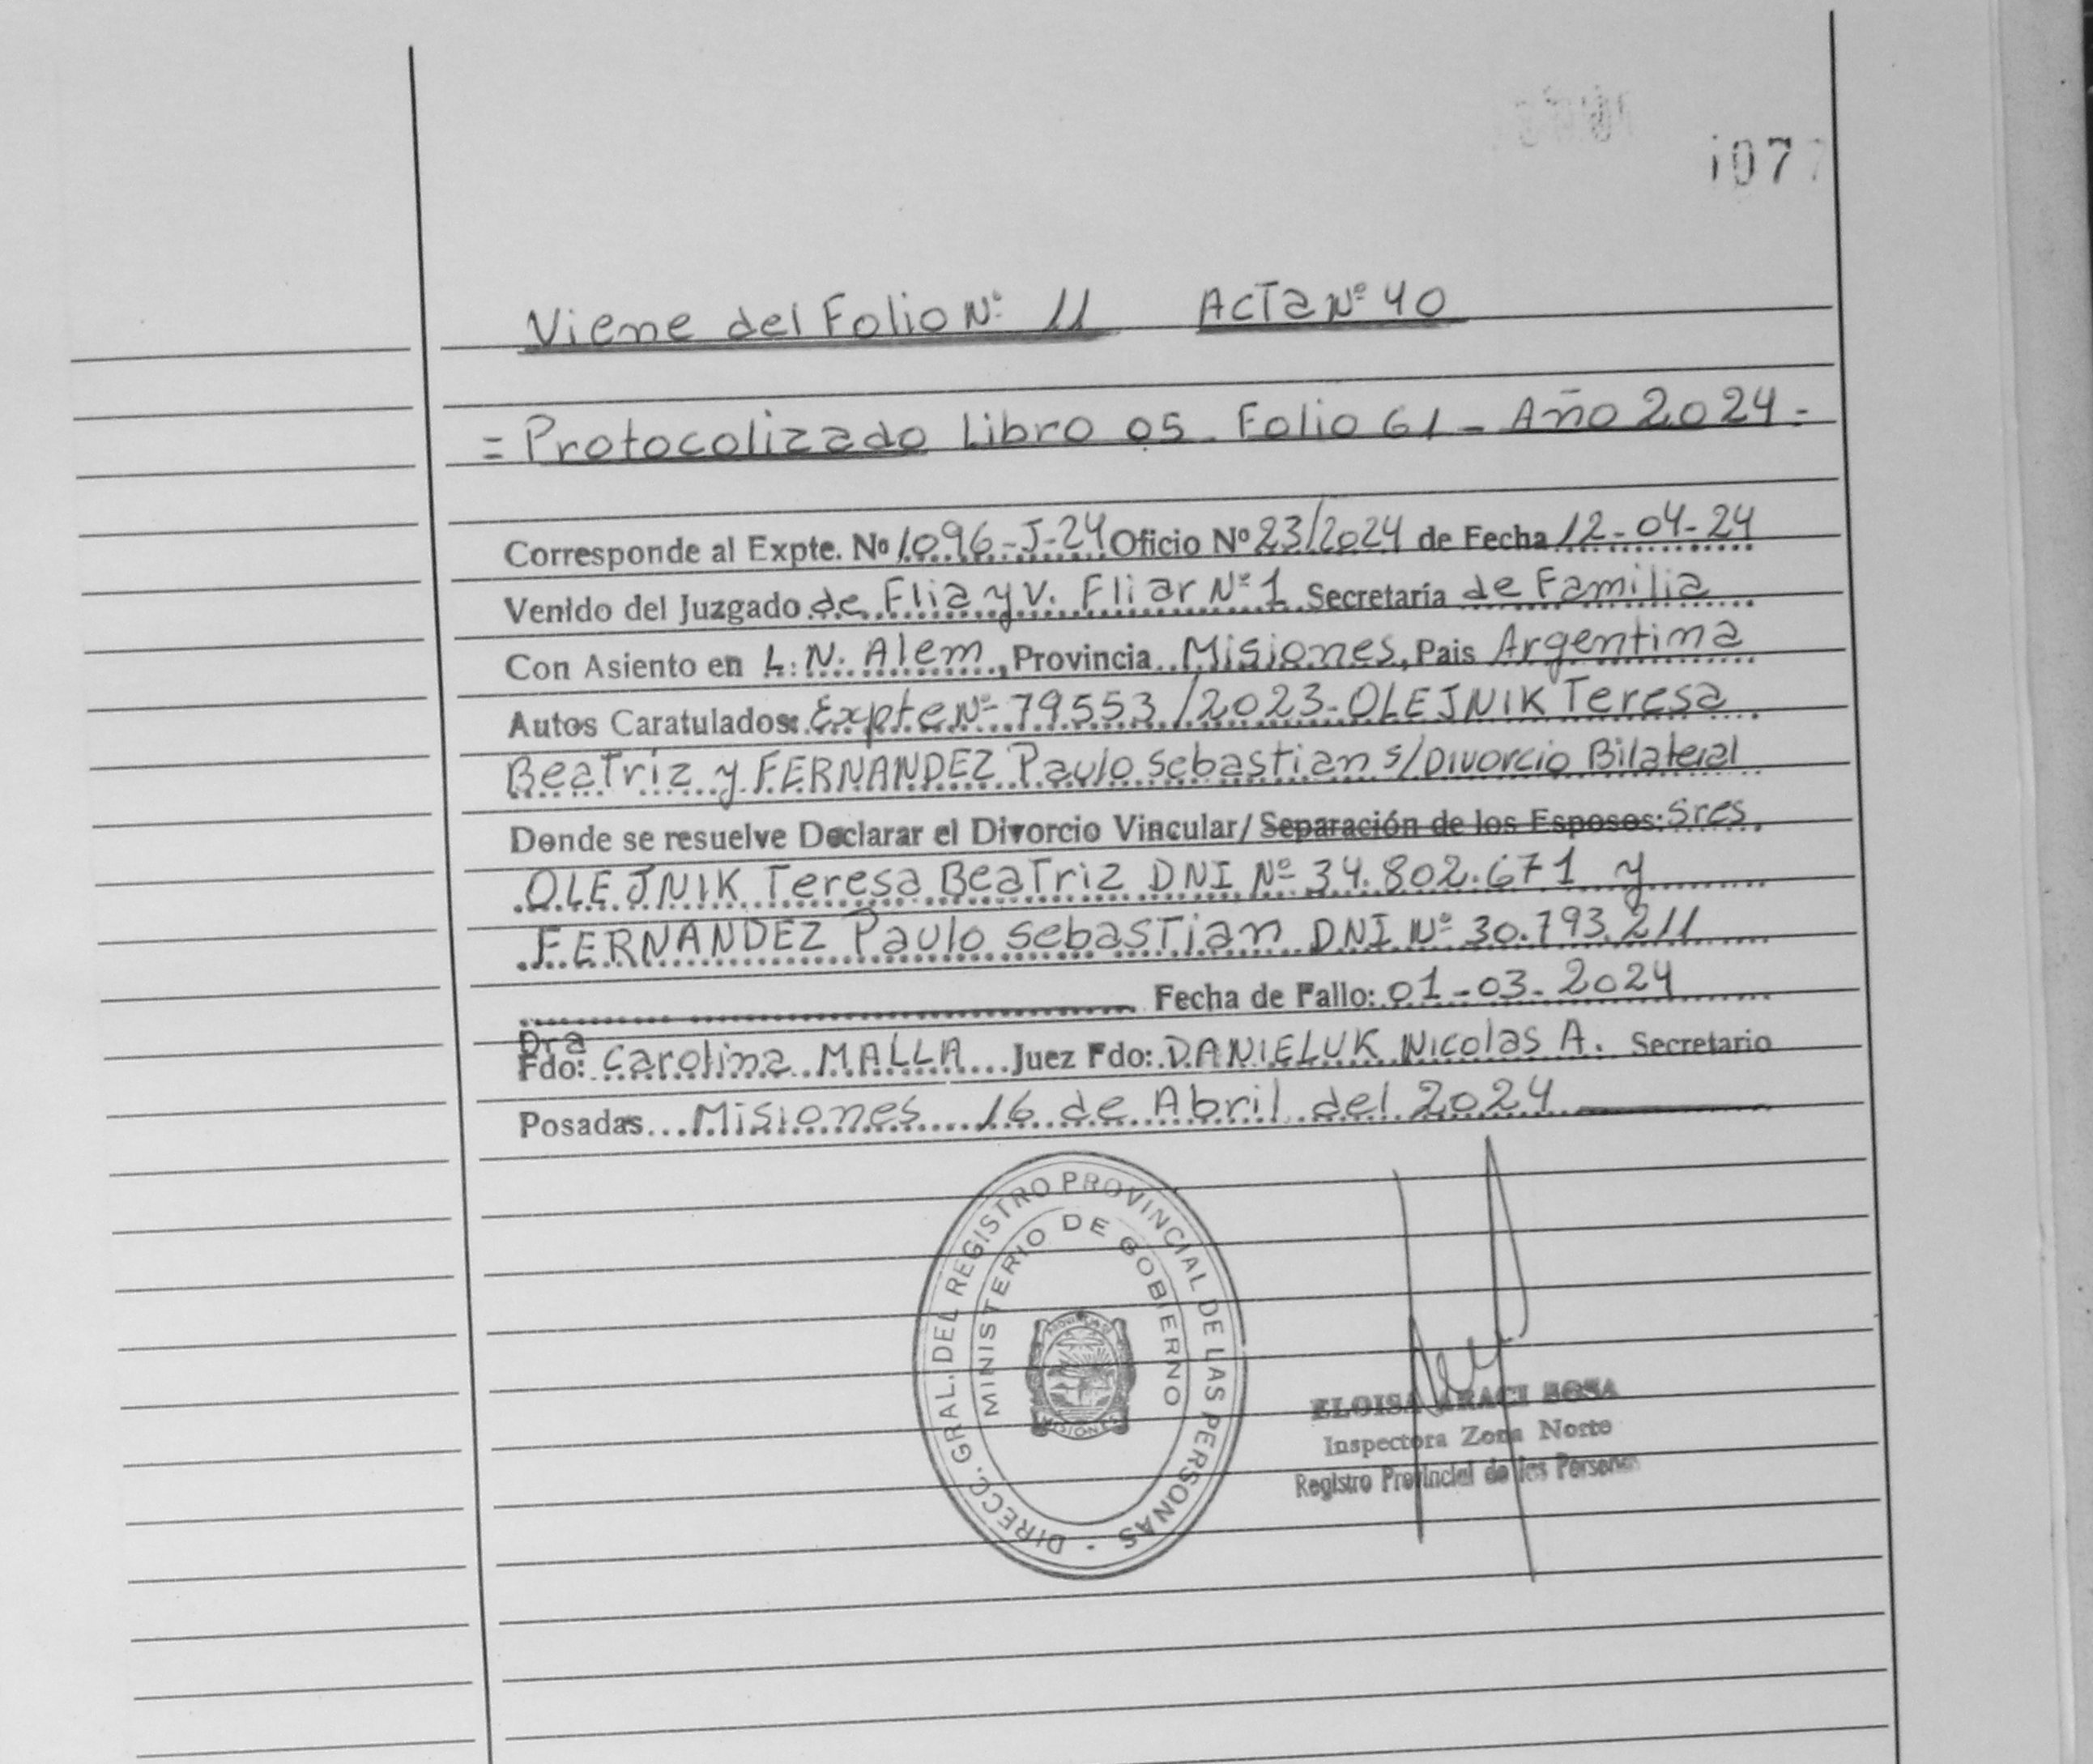 1077
Viene del Folio Nº 11 Acta Nº 40
= Protocolizado Libro 05. Folio 61 - Año 2024 -
Corresponde al Expte. Nº 1096-J-24 Oficio Nº 23/2024 de Fecha 12-04-24
Venido del Juzgado de Flia y V. Fliar Nº 1 Secretaría de Familia
Con Asiento en L. N. Alem, Provincia Misiones, Pais Argentina
Autos Caratulados: Expte Nº 79553/2023 - OLEJNIK Teresa
Beatriz y FERNANDEZ Paulo Sebastian s/Divorcio Bilateral
Donde se resuelve Declarar el Divorcio Vincular/ Separación de los Esposos: Sres
OLEJNIK Teresa Beatriz DNI Nº 34.802.671 y
FERNANDEZ Paulo Sebastian DNI Nº 30.793.211
Fecha de Fallo: 01-03-2024
Dra
Fdo: Carolina MALLA Juez Fdo: DANIELUK Nicolas A. Secretario
Posadas Misiones 16 de Abril del 2024
DIRECC. GRAL. DEL REGISTRO PROVINCIAL DE LAS PERSONAS -
MINISTERIO DE GOBIERNO
MISIONES
ELOISA ARACI SOSA
Inspectora Zona Norte
Registro Provincial de las Personas